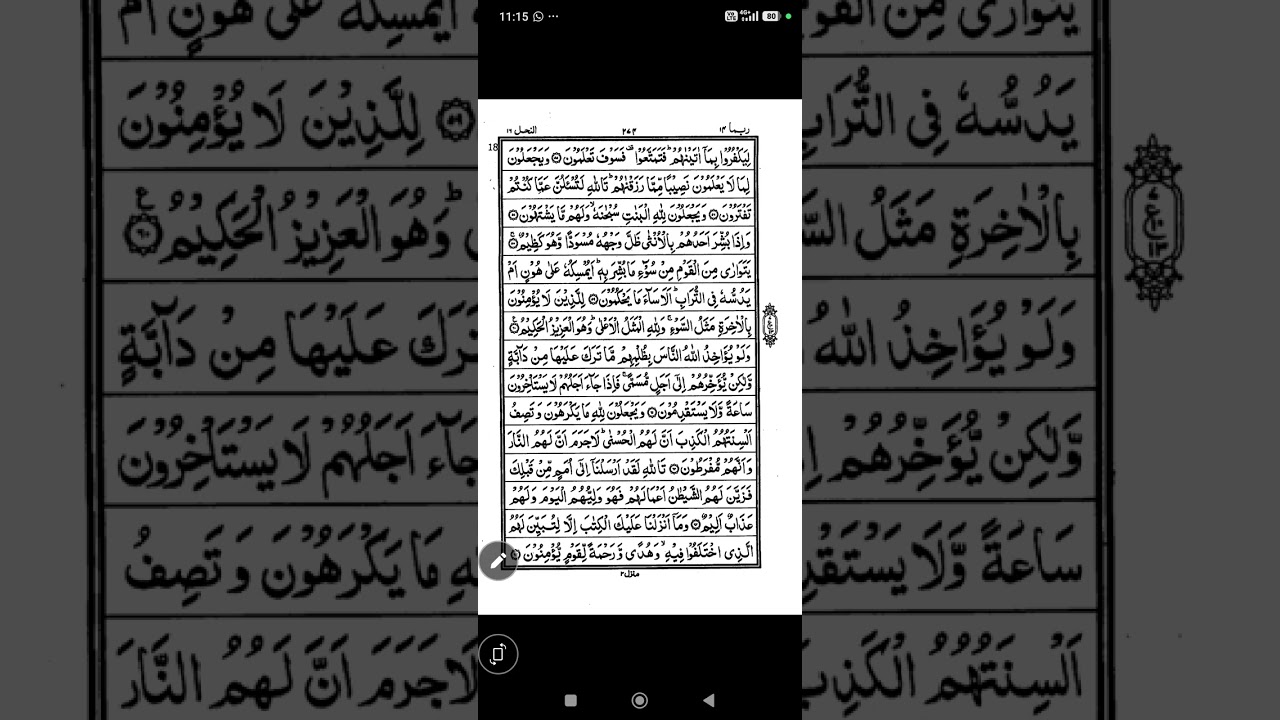 11:15
80
ربما ۱۴
۲۷۴
النحل ۱۶
18
لِيَكْفُرُوْا بِمَاۤ اٰتَيْنٰهُمْ ؕ فَتَمَتَّعُوْا ۫ فَسَوْفَ تَعْلَمُوْنَ ۝ وَيَجْعَلُوْنَ
لِمَا لَا يَعْلَمُوْنَ نَصِيْبًا مِّمَّا رَزَقْنٰهُمْ ؕ تَاللّٰهِ لَتُسْـَٔلُنَّ عَمَّا كُنْتُمْ
تَفْتَرُوْنَ ۝ وَيَجْعَلُوْنَ لِلّٰهِ الْبَنٰتِ سُبْحٰنَهٗ ۙ وَلَهُمْ مَّا يَشْتَهُوْنَ ۝
وَاِذَا بُشِّرَ اَحَدُهُمْ بِالْاُنْثٰى ظَلَّ وَجْهُهٗ مُسْوَدًّا وَّهُوَ كَظِيْمٌ ۝
يَتَوَارٰى مِنَ الْقَوْمِ مِنْ سُوْٓءِ مَا بُشِّرَ بِهٖ ؕ اَيُمْسِكُهٗ عَلٰى هُوْنٍ اَمْ
يَدُسُّهٗ فِى التُّرَابِ ؕ اَلَا سَآءَ مَا يَحْكُمُوْنَ ۝ لِلَّذِيْنَ لَا يُؤْمِنُوْنَ
بِالْاٰخِرَةِ مَثَلُ السَّوْءِ ۚ وَلِلّٰهِ الْمَثَلُ الْاَعْلٰى ؕ وَهُوَ الْعَزِيْزُ الْحَكِيْمُ ۝
وَلَوْ يُؤَاخِذُ اللّٰهُ النَّاسَ بِظُلْمِهِمْ مَّا تَرَكَ عَلَيْهَا مِنْ دَآبَّةٍ
وَّلٰكِنْ يُّؤَخِّرُهُمْ اِلٰٓى اَجَلٍ مُّسَمًّى ۚ فَاِذَا جَآءَ اَجَلُهُمْ لَا يَسْتَاْخِرُوْنَ
سَاعَةً وَّلَا يَسْتَقْدِمُوْنَ ۝ وَيَجْعَلُوْنَ لِلّٰهِ مَا يَكْرَهُوْنَ وَتَصِفُ
اَلْسِنَتُهُمُ الْكَذِبَ اَنَّ لَهُمُ الْحُسْنٰى ؕ لَا جَرَمَ اَنَّ لَهُمُ النَّارَ
وَاَنَّهُمْ مُّفْرَطُوْنَ ۝ تَاللّٰهِ لَقَدْ اَرْسَلْنَاۤ اِلٰٓى اُمَمٍ مِّنْ قَبْلِكَ
فَزَيَّنَ لَهُمُ الشَّيْطٰنُ اَعْمَالَهُمْ فَهُوَ وَلِيُّهُمُ الْيَوْمَ وَلَهُمْ
عَذَابٌ اَلِيْمٌ ۝ وَمَاۤ اَنْزَلْنَا عَلَيْكَ الْكِتٰبَ اِلَّا لِتُبَيِّنَ لَهُمُ
الَّذِى اخْتَلَفُوْا فِيْهِ ۙ وَهُدًى وَّرَحْمَةً لِّقَوْمٍ يُّؤْمِنُوْنَ ۝
منزل ۳